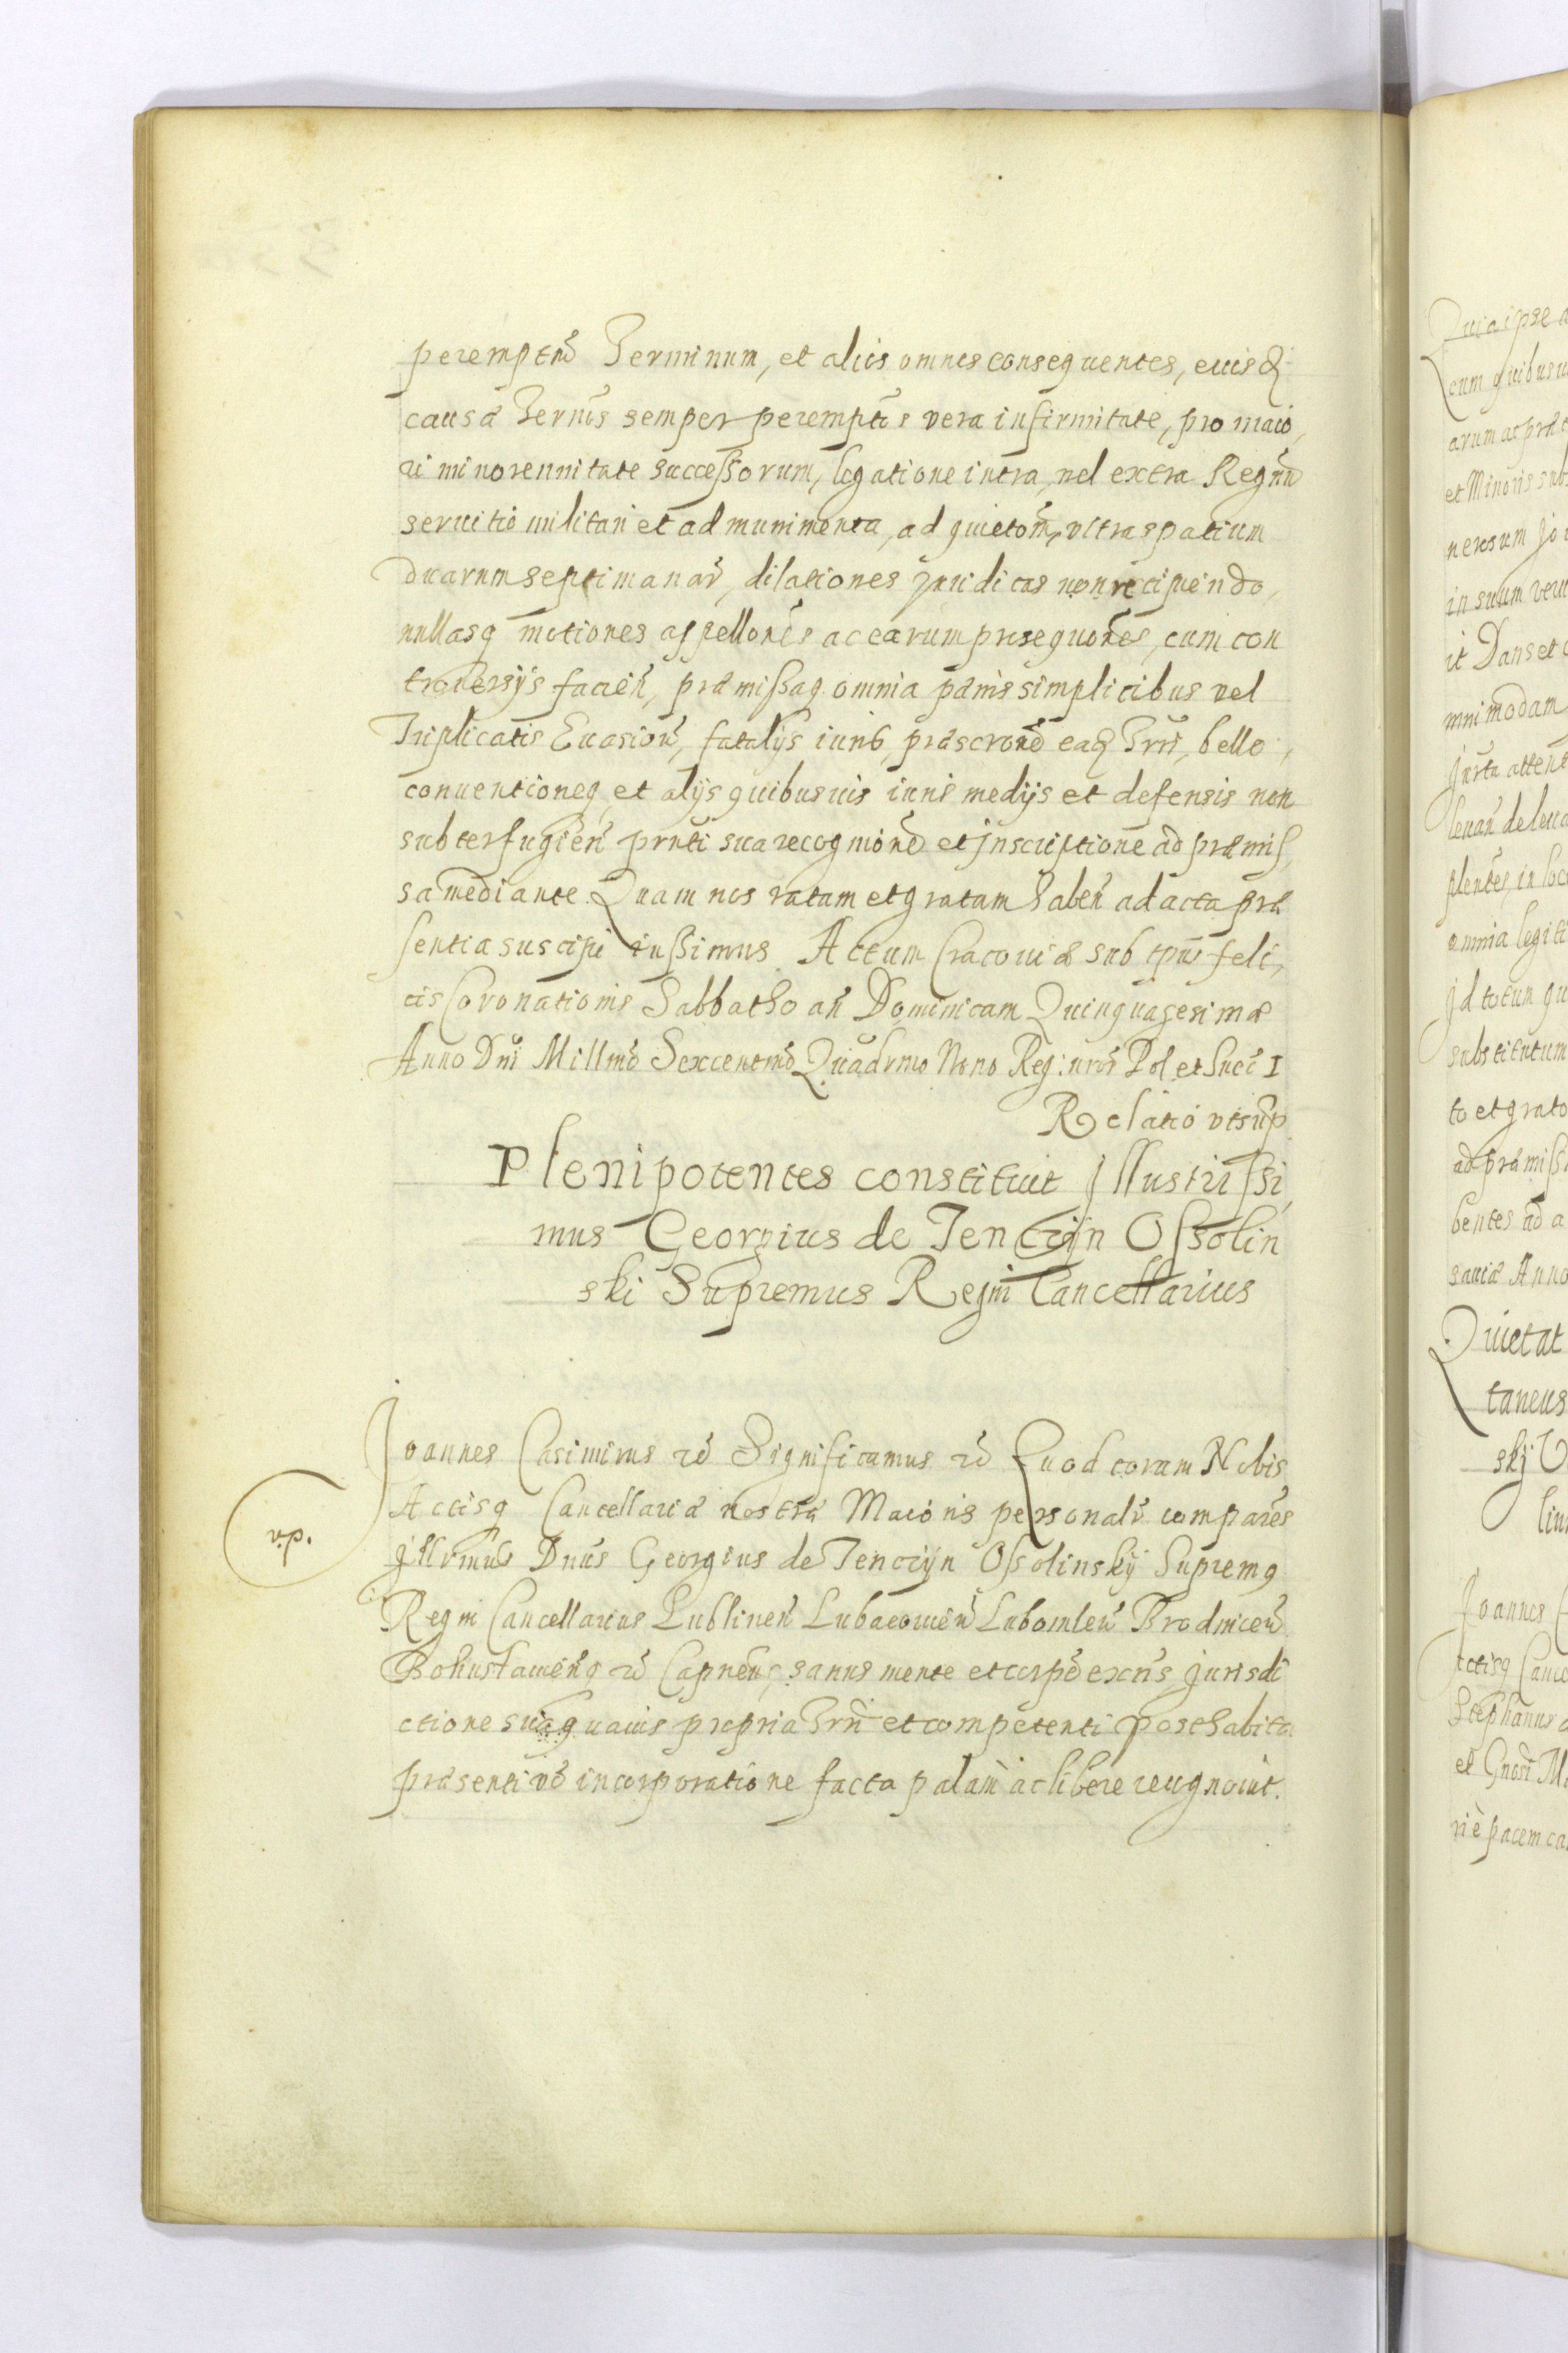 peremptñ Terminum, et alios omnes consequentes, eiusq
causa Termis semper peremptis vera infirmitate, pro maio,
ri minorennitate successorum, legatione intra, vel extra Regnũ
servitio militari et ad munimenta, ad quietom, vltra spatium
duarum septimanar, dilationes juridicas non recipiendo,
nullasq motiones appellones ac earum prosequones, cum con
troversijs facień, præmissaq omnia pænis simplicibus vel
Triplicatis Evasioñ, fatalijs iuris, præscrone eaq Trri, bello,
conventioneq, et alijs quibusvis iuris medijs et defensis non
subterfugień prnti sua recognione et jnscriptione ad præmis,
sa mediante. Quam nos ratam et gratam haben ad acta præ
sentia suscipi iussimus. Actum Cracoviæ sub tpus feli,
cis Coronationis Sabbatho añ Dominicam Quinquagesimæ
Anno Dni Millmo Sexcentmo Quadrmo Nono Reg: nror Pol et Suec I
Relatio vt sup
Plenipotentes constituit Jllustrissi,
mus Georgius de Tenczijn Ossolin
ski Supremus Regni Cancellarius
Joannes Casimirus rc Significamus rc Quod coram Nobis
Actisq Cancellariæ nostræ Maioris personalr compares
jllrmus Dnus Georgius de Tenczijn Ossolinskij Supremg
Regni Cancellarius Lublineñ Lubaczovień Lubomleñ Brodniceñ
Bohuslavieñq rc Capneus, sanus mente et corpe exns jurisdi
ctione suaq quavis propria Trri et competenti posthabita
præsenti vo incorporatione facta palam ac libere recognovit.
v.p.
Quia ipse a
cum quibusu
arum ac præ
et Minoris sub
in suum veru
it Dans et
mnimodam
justa attent
levañ deleva
plentes, in loc
omnia legiti
jd totum qu
substitutum
to et grato
ad præmissa
bentes ad a
saviæ Anno
Quietat
taneus
skij V
liu
Joannes C
Actisq Cance
Stephanus d
et Gnosi M
riè pacem ca